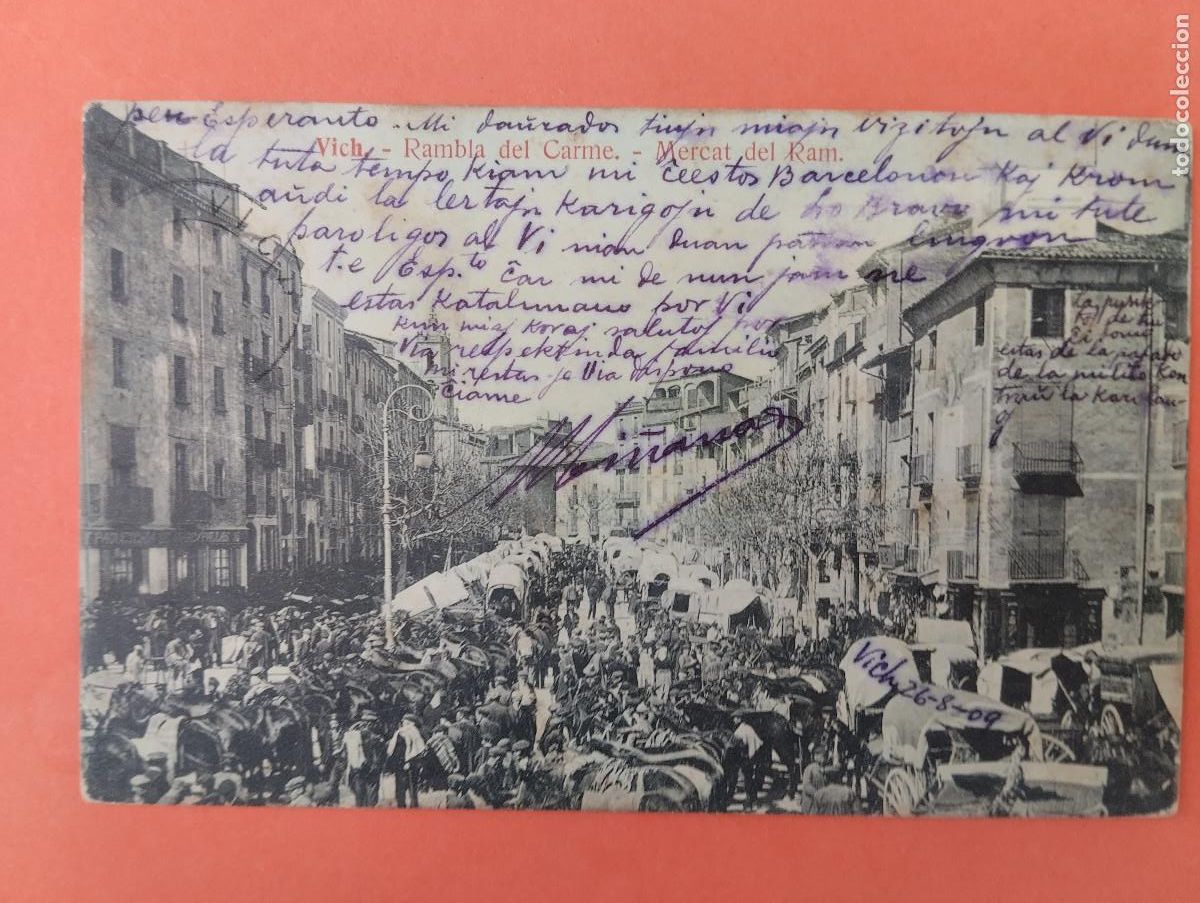 per Esperanto. Mi daŭrados tiujn miajn vizitojn al Vi dum
Vich. - Rambla del Carme. - Mercat del Ram.
la tuta tempo, kiam mi ĉeestos Barcelonon kaj krom
aŭdi la lertajn karigojn de Bravo mi tute
paroligos al Vi nian duan patran lingvon
t. e Esp.to ĉar mi de nun jam ne
estas katalunano por Vi
Kun miaj koraj salutoj por
Via respektinda familio
mi restas je Via dispono
ĉiame
La
de tiu
estas de la
de la milito kon
traŭ la
Vich, 26-8-09
todocoleccion